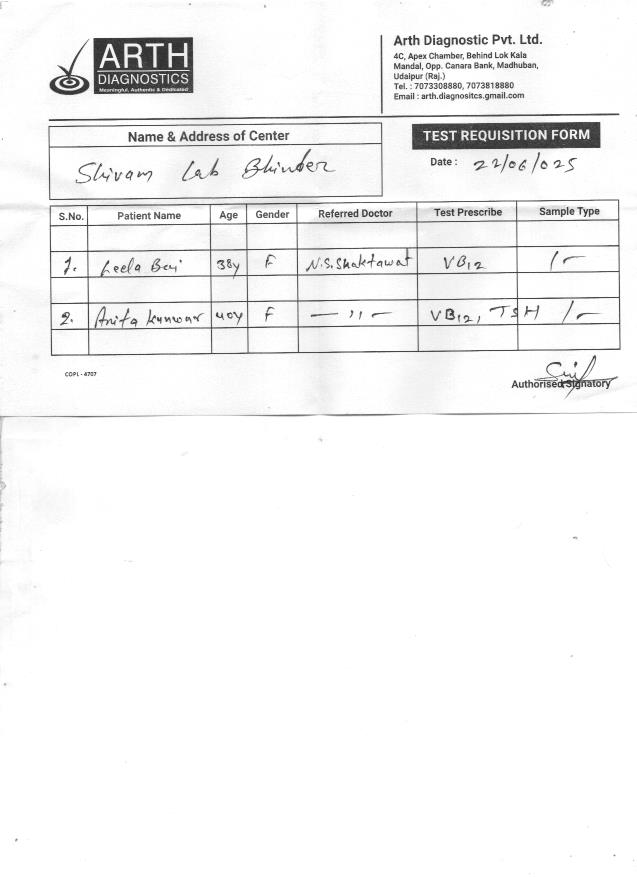 ARTH
DIAGNOSTICS
Meaningful, Authentic & Dedicated
Arth Diagnostic Pvt. Ltd.
4C, Apex Chamber, Behind Lok Kala
Mandal, Opp. Canara Bank, Madhuban,
Udaipur (Raj.)
Tel. : 7073308880, 7073818880
Email : arth.diagnositcs.gmail.com
Name & Address of Center
Shivam Lab Bhinder
TEST REQUISITION FORM
Date : 22/06/025
S.No. Patient Name Age Gender Referred Doctor Test Prescribe Sample Type
1. Leela Bai 38y F N.S.Shaktawat VB12 1-
2. Anita Kunwar 40y F - ,, - VB12, TSH 1-
COPL - 4707
Authorised Signatory